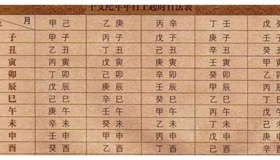 月 甲己 乙庚 丙辛 丁壬 戊
子 甲子 丙子 戊子 庚子 壬
丑 乙丑 丁丑 己丑 辛丑 癸
寅 丙寅 戊寅 庚寅 壬寅 甲
卯 丁卯 己卯 辛卯 癸卯 乙
辰 戊辰 庚辰 壬辰 甲辰 丙
巳 己巳 辛巳 癸巳 乙巳 丁
午 庚午 壬午 甲午 丙午 戊
未 辛未 癸未 乙未 丁未 己
申 壬申 甲申 丙申 戊申 庚
酉 癸酉 乙酉 丁酉 己酉 辛